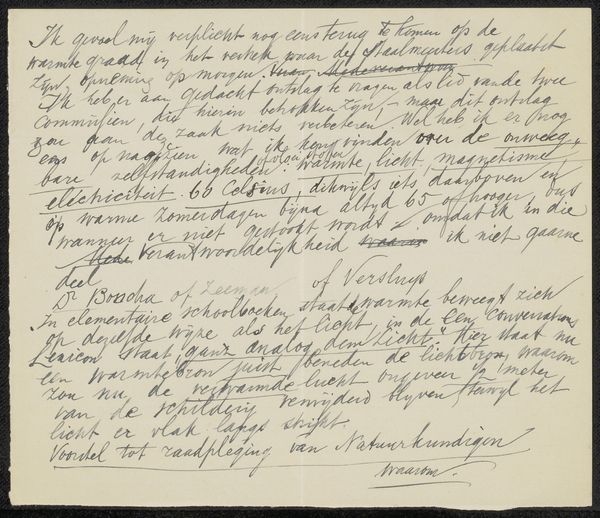 Ik gevoel mij verplicht nog eens terug te komen op de
warmte graad in het vertrek waar de Staalmeesters geplaatst
zijn, opneming op morgen.
Ik heb er aan gedacht ontslag te vragen als lid van de twee
Commissien, die hierin betrokken zijn, – maar dit ontslag
zou aan de zaak niets verbeteren. Wel heb ik er nog
eens op nagezien wat ik kon vinden over de onweeg„
bare zelfstandigheden of vloeistoffen warmte, licht, magnetisme,
electriciteit. 65 Celsius, dikwijls iets daarboven en
op warme zomerdagen bijna altyd 65 of hooger, dus
wanneer er niet gestookt wordt omdat ik in die
verantwoordelijkheid waarin ik niet gaarne
deel
Dr Bosscha of Zeeman of Versluys
In elementaire schoolboeken staat de warmte beweegt zich
op dezelfde wijze als het licht, in de Conversations
Lexicon staat „ganz analog dem Licht". Hier staat nu
een warmtebron juist beneden de lichtbron, waarom
zou nu de verwarmde lucht ongeveer meter
van de schildery verwijderd blyven, terwyl het
licht er vlak langs strijkt.
Voorstel tot raadpleging van Natuurkundigen
waarom.